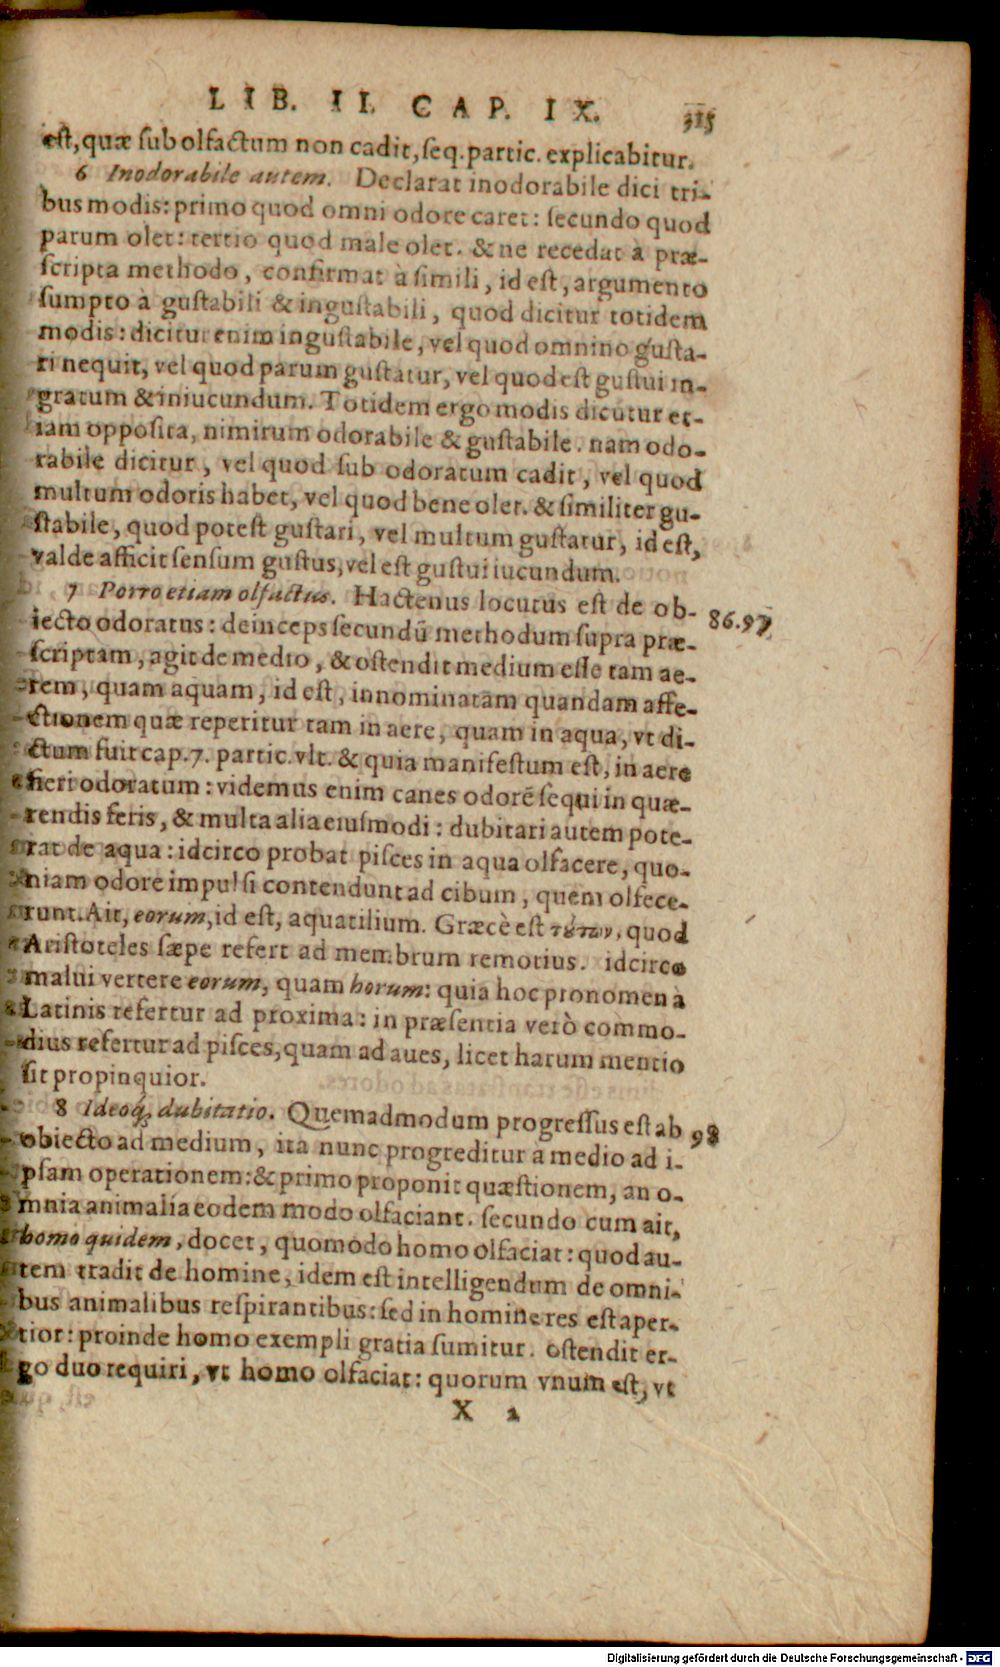 LIB. II. CAP. IX. 315
est, quæ sub olfactum non cadit, seq. partic. explicabitur.
6 Inodorabile autem. Declarat inodorabile dici tri-
bus modis: primo quod omni odore caret: secundo quod
parum olet: tertio quod male olet. & ne recedat à præ-
scripta methodo, confirmat à simili, id est, argumento
sumpto à gustabili & ingustabili, quod dicitur totidem
modis: dicitur enim ingustabile, vel quod omnino gusta-
ri nequit, vel quod parum gustatur, vel quod est gustui in-
gratum & iniucundum. Totidem ergo modis dicũtur et-
iam opposita, nimirum odorabile & gustabile. nam odo-
rabile dicitur, vel quod sub odoratum cadit, vel quod
multum odoris habet, vel quod bene olet. & similiter gu-
stabile, quod potest gustari, vel multum gustatur, id est,
valde afficit sensum gustus, vel est gustui iucundum.
7 Porro etiam olfactus. Hactenus locutus est de ob- 86.97
iecto odoratus: deinceps secundũ methodum supra præ-
scriptam, agit de medio, & ostendit medium esse tam ae-
rem, quam aquam, id est, innominatam quandam affe-
ctionem quæ reperitur tam in aere, quam in aqua, vt di-
ctum fuit cap. 7. partic. vlt. & quia manifestum est, in aere
fieri odoratum: videmus enim canes odorẽ sequi in quæ-
rendis feris, & multa alia eiusmodi: dubitari autem pote-
rat de aqua: idcirco probat pisces in aqua olfacere, quo-
niam odore impulsi contendunt ad cibum, quem olfece-
runt. Ait, eorum, id est, aquatilium. Græcè est τούτων, quod
Aristoteles sæpe refert ad membrum remotius. idcirco
malui vertere eorum, quam horum: quia hoc pronomen à
Latinis refertur ad proxima: in præsentia verò commo-
dius refertur ad pisces, quam ad aues, licet harum mentio
sit propinquior.
8 Ideoq́; dubitatio. Quemadmodum progressus est ab 98
obiecto ad medium, ita nunc progreditur à medio ad i-
psam operationem: & primo proponit quæstionem, an o-
mnia animalia eodem modo olfaciant. secundo cum ait,
homo quidem, docet, quomodo homo olfaciat: quod au-
tem tradit de homine, idem est intelligendum de omni-
bus animalibus respirantibus: sed in homine res est aper-
tior: proinde homo exempli gratia sumitur. ostendit er-
go duo requiri, vt homo olfaciat: quorum vnum est, vt
X 2
Digitalisierung gefördert durch die Deutsche Forschungsgemeinschaft - DFG